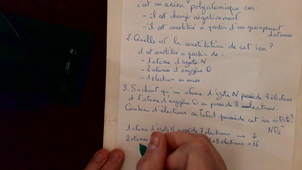 c'est un anion polyatomique car:
- il est chargé négativement
- il est constitué à partir d'un groupement d'atomes
2. Quelle est la constitution de cet ion?
Il est constitué à partir de:
- 1 atome d'azote N
- 2 atomes d'oxygène O
- 1 électron en
3. Sachant qu'un atome d'azote N possède 7 électrons
et l'atome d'oxygène O en possède 8 électrons.
Combien d'électrons au total possède cet ion nitrite?
1 atome d'azote N possède 7 électrons → 7 NO₂⁻
2 atomes électrons = 16